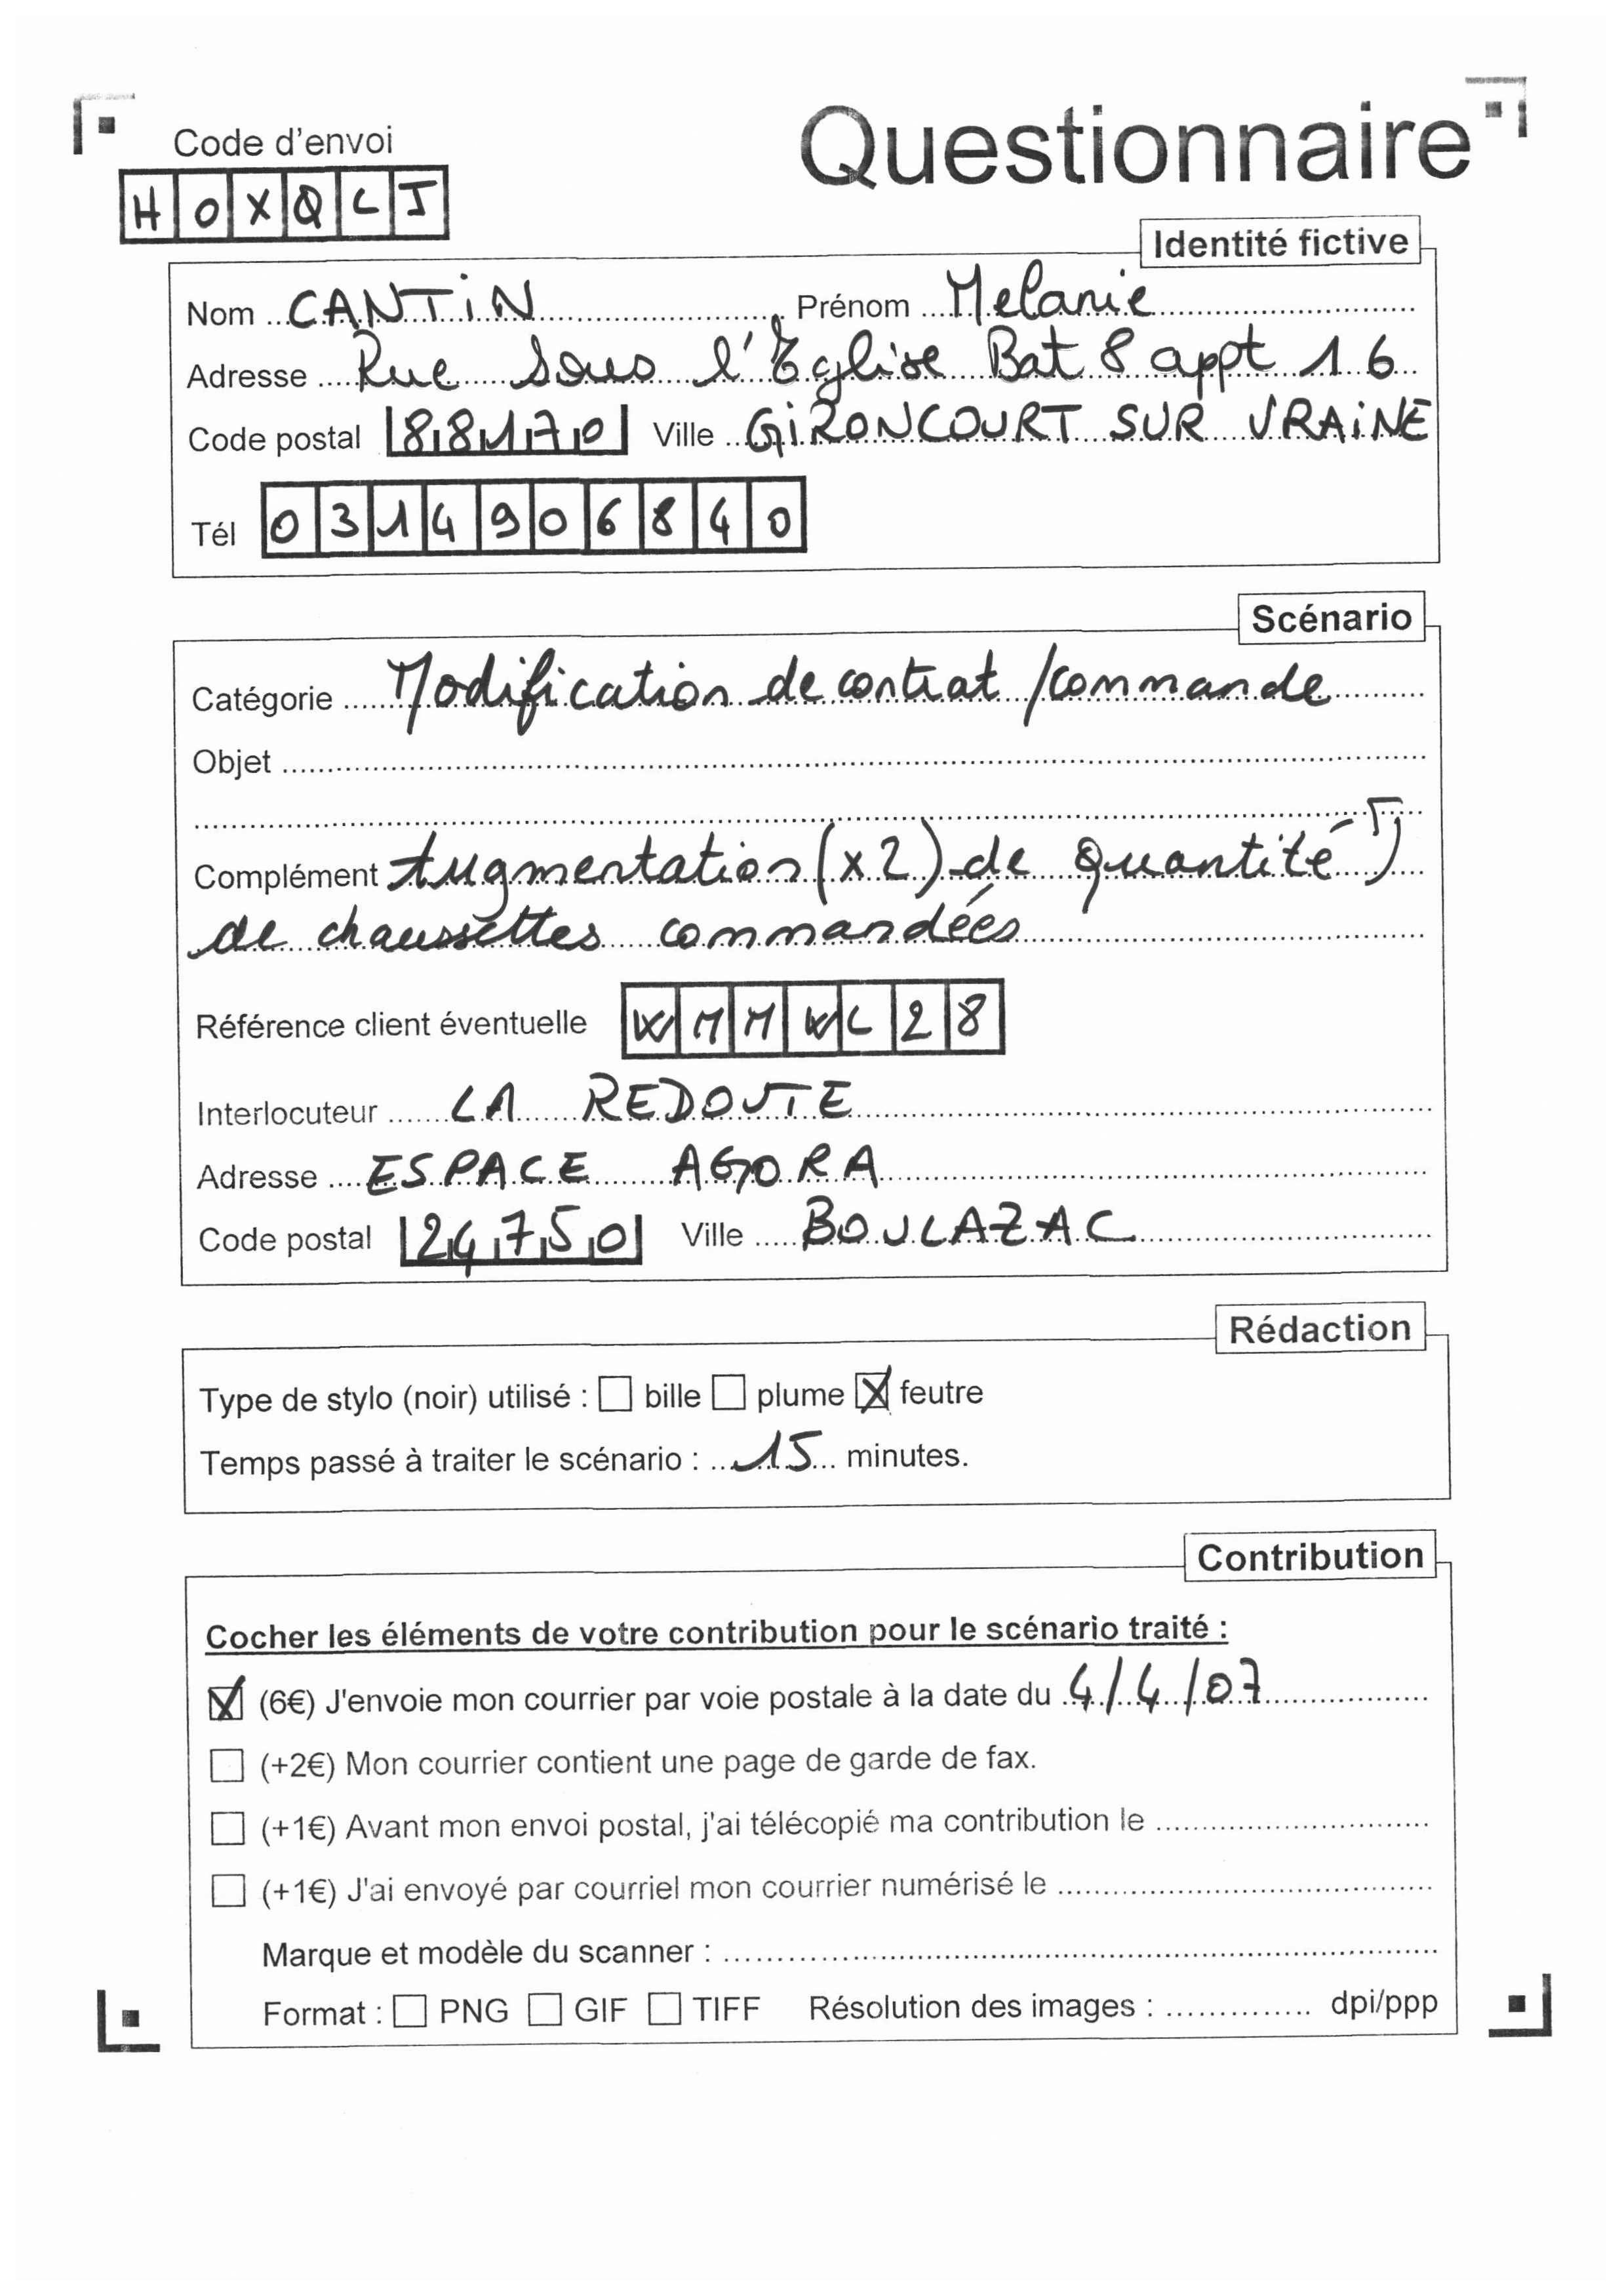 Code d'envoi
Questionnaire
HOXQLJ
Identité fictive
Nom CANTiN Prénom Melanie
Adresse Rue Sous l'Eglise Bat 8 appt 16
Code postal 88170 Ville GiRONCOURT SUR VRAiNE
Tél 0314906840
Scénario
Catégorie Modification de contrat /commande
Objet
Complément Augmentation (x2) de quantité
de chaussettes commandées
Référence client éventuelle WMMWL28
Interlocuteur LA REDOUTE
Adresse ESPACE AGORA
Code postal 24750 Ville BOULAZAC
Rédaction
Type de stylo (noir) utilisé : bille plume feutre
Temps passé à traiter le scénario : 15 minutes.
Contribution
Cocher les éléments de votre contribution pour le scénario traité :
(6€) J'envoie mon courrier par voie postale à la date du 4/4/07
(+2€) Mon courrier contient une page de garde de fax.
(+1€) Avant mon envoi postal, j'ai télécopié ma contribution le
(+1€) J'ai envoyé par courriel mon courrier numérisé le
Marque et modèle du scanner :
Format : PNG GIF TIFF Résolution des images : dpi/ppp